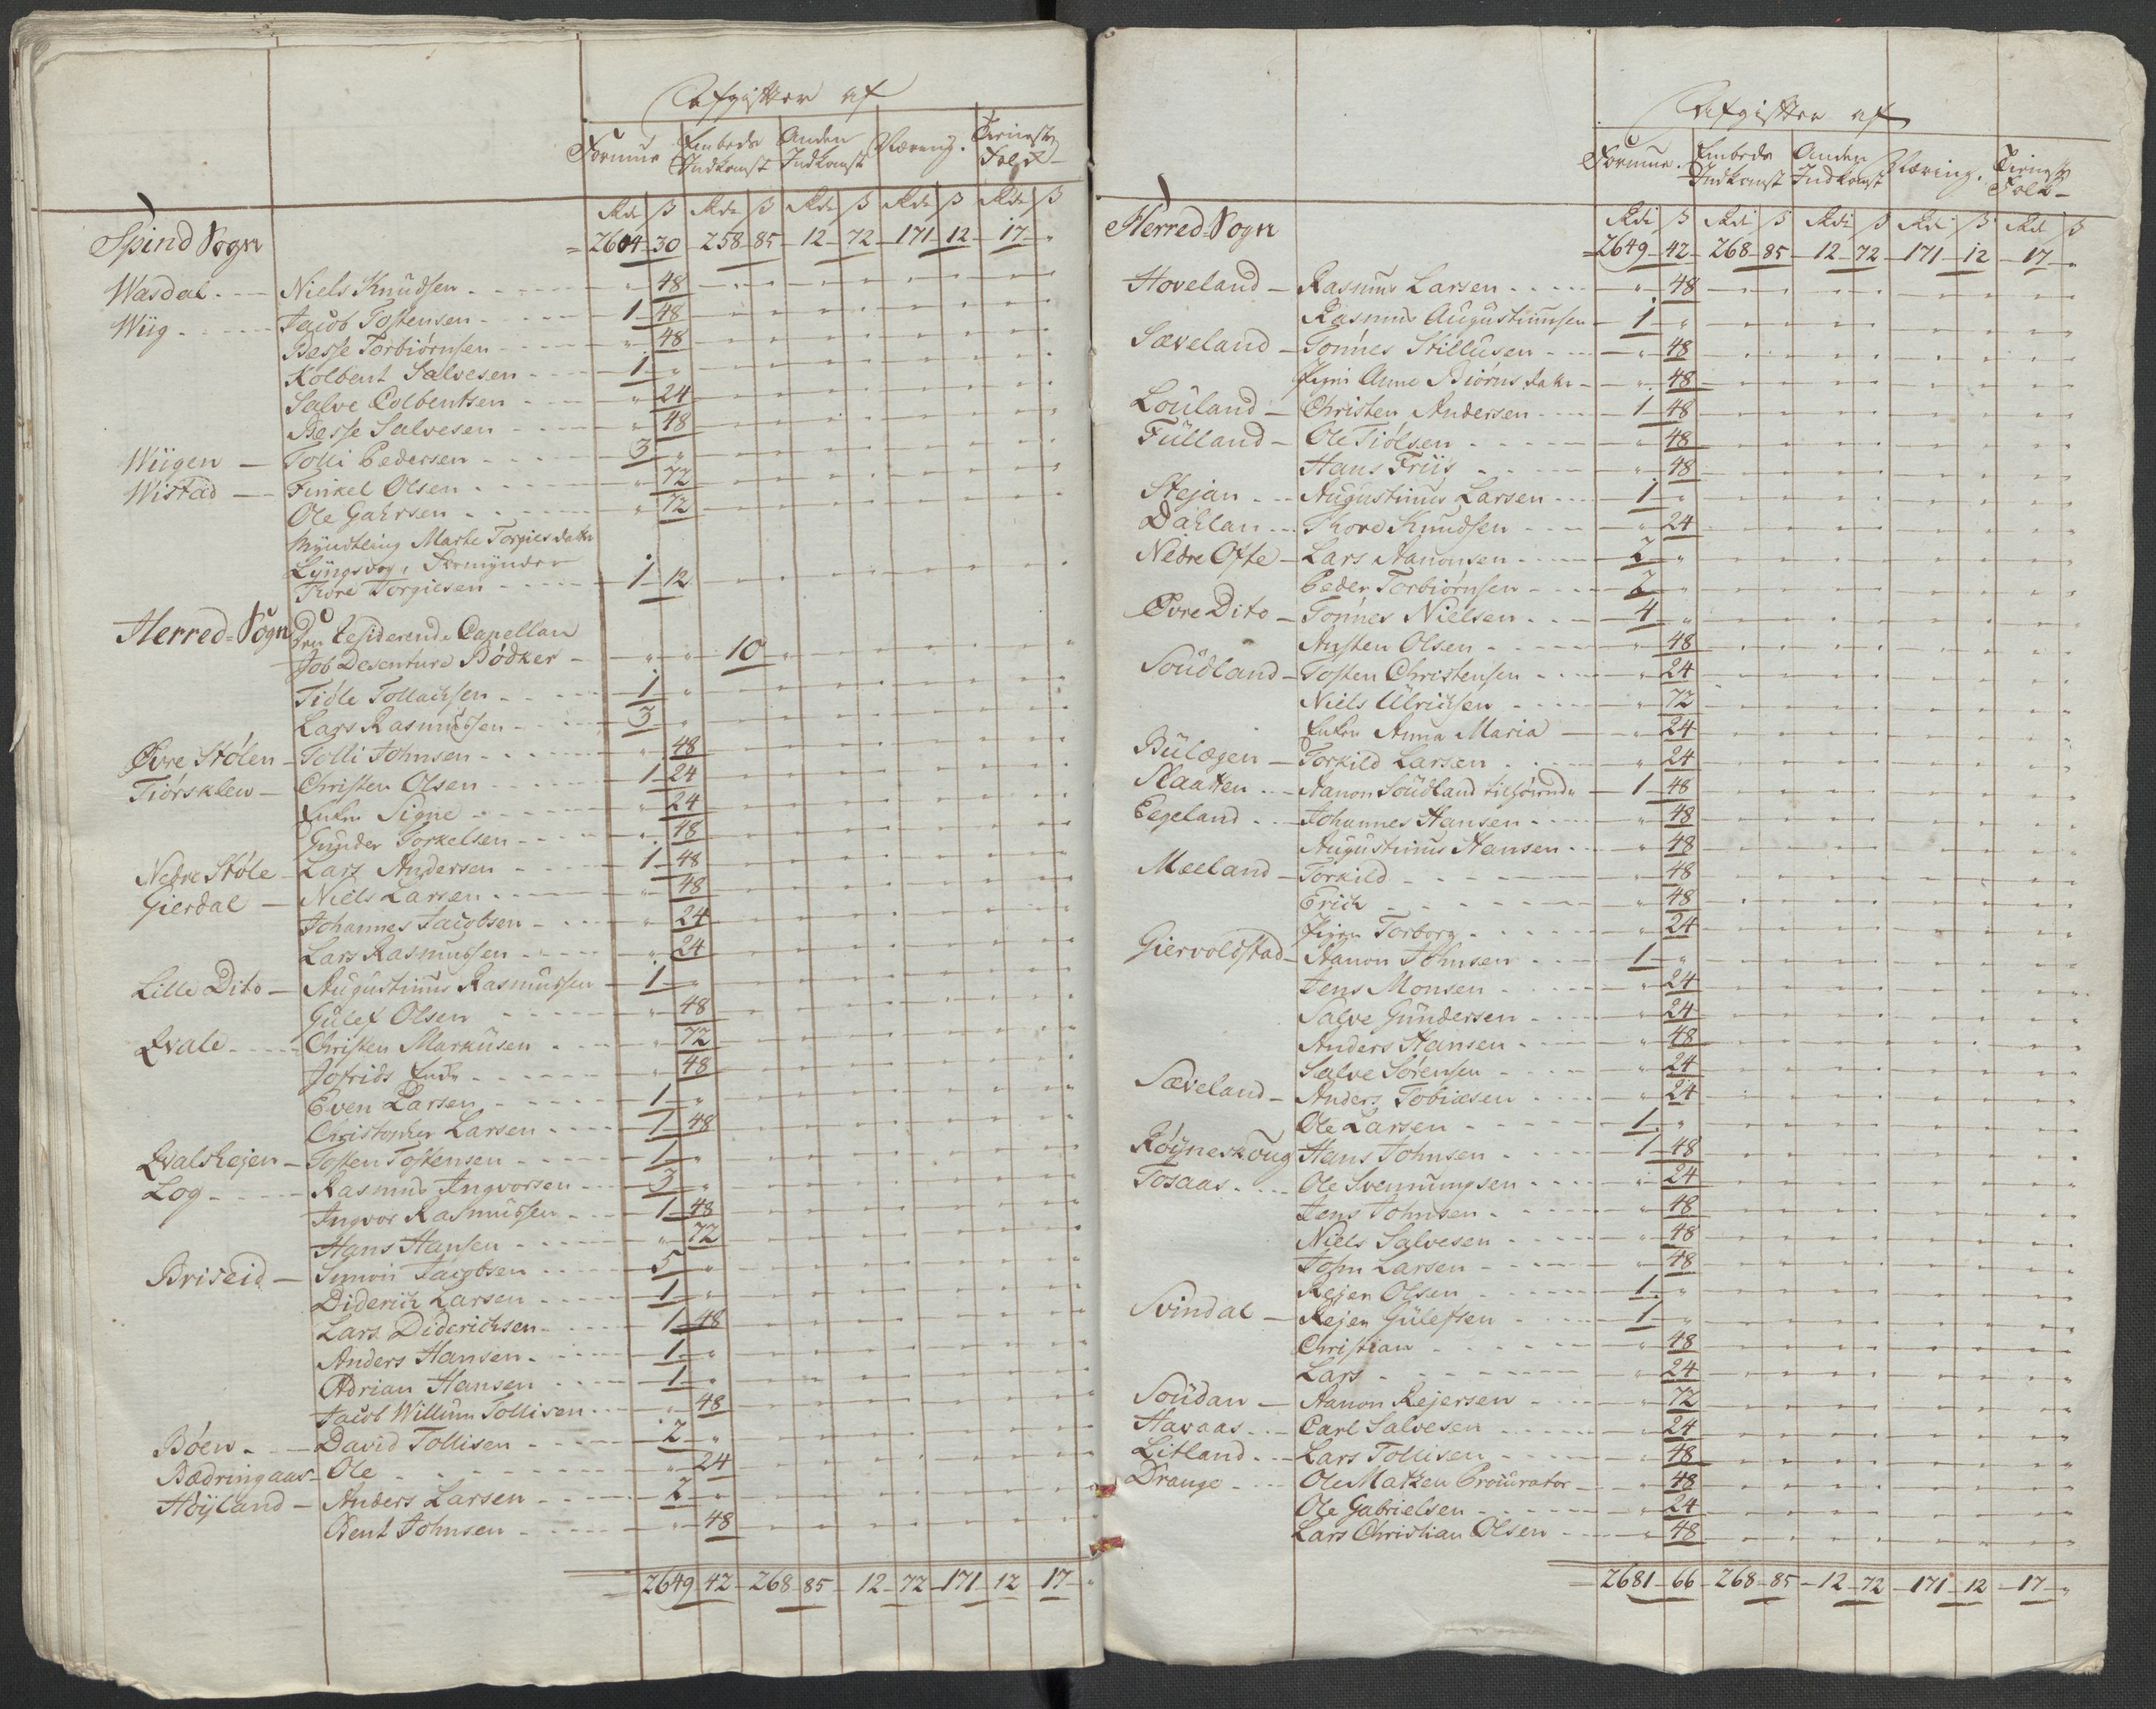 Afgifter af
Formue Embeds Indkomst Anden Indkomst Næring. Tieneste Folk
Rdr ß Rdr ß Rdr ß Rdr ß Rdr ß
Spind Sogn = 2604 - 30 - 258 - 85 - 12 - 72 - 171 - 12 - 17 - "
Wasdal - Niels Knudsen - " 48
Wiig - Jacob Tostensen - 1 - 48
Besse Torbiørnsen - " 48
Kolbent Salvesen - 1 - "
Salve Colbentsen - " 24
Besse Salvesen - " 48
Wiigen - Tolli Pedersen - 3 - "
Wistad - Finkel Olsen - " 72
Ole Gahrsen - " 72
Myndtling Marte Torgiesdatter
Lyngsvog, Formynder
Tore Torgiesen - 1 - 12
Herred=Sogn Den Residerende Capellan
Job Desenture Bödker - " " 10 "
Tiöle Tollachsen - 1 - "
Lars Rasmussen - 3 - "
Øvre Stölen - Tolli Johnsen - " 48
Tiörsklev - Christen Olsen - 1 - 24
Enken Signe - " 24
Gunder Torkelsen - " 48
Nedre Støle - Lars Andersen - 1 - 48
Gierdal - Niels Larsen - " 48
Johannes Jacobsen - " 24
Lars Rasmussen - " 24
Lille Dito - Augustinus Rasmussen - 1 - "
Gulef Olsen - " 48
Qvale - Christen Markusen - " 72
Jofrids Enke - " 48
Even Larsen - 1 - "
Christopher Larsen - 1 - 48
Qvalshejen - Tosten Tostensen - 1 - "
Log - Rasmus Ingvorsen - 3 - "
Ingvor Rasmussen - 1 - 48
Hans Hansen - " 72
Briseid - Simon Jacobsen - 5 - "
Diderich Larsen - 1 - "
Lars Diderichsen - 1 - 48
Anders Hansen - 1 - "
Adrian Hansen - 1 - "
Jacob Willum Tollisen - " 48
Böen - David Tollisen - 2 - "
Bødringaas - Ole - " 24
Høyland - Anders Larsen - 2 - "
Bent Johnsen - " 48
= 2649 - 42 - 268 - 85 - 12 - 72 - 171 - 12 - 17 - "
Afgifter af
Formue. Embeds Indkomst Anden Indkomst Næring. Tieneste Folk
Rdr ß Rdr ß Rdr ß Rdr ß Rdr ß
Herred=Sogn = 2649 - 42 - 268 - 85 - 12 - 72 - 171 - 12 - 17 - "
Hoveland - Rasmus Larsen - " 48
Rasmus Augustinusen - 1 - "
Sæveland - Tonnes Stillusen - " 48
Pigen Anne Biørns datter - " 48
Louland - Christen Andersen - 1 - 48
Fülland - Ole Tiølsen - " 48
Hans Friis - " 48
Stejan - Augustinus Larsen - 1 - "
Dahlan - Thore Knudsen - " 24
Nedre Ofte - Lars Aanonsen - 2 - "
Peder Torbiørnsen - 2 - "
Øvre Dito - Tonnes Nielsen - 4 - "
Austen Olsen - " 48
Soudland - Tosten Christensen - " 24
Niels Ulrichsen - " 72
Enken Anna Maria - " 24
Bülægen - Torkild Larsen - " 24
Slaatten - Aanon Soudland tilhörende - 1 - 48
Eegeland - Johannes Hansen - " 48
Augustinus Hansen - " 48
Meeland - Torkild - " 48
Erich - " 48
Pigen Torborg - " 24
Giervoldstad - Aanon Johnsen - 1 - "
Jens Monsen - " 24
Salve Gundersen - " 24
Anders Hansen - " 48
Salve Sörensen - " 24
Sæveland - Anders Tobiæsen - " 24
Ole Larsen - 1 - "
Röyneskoug Hans Johnsen - 1 - 48
Tosaas - Ole Svennungsen - " 24
Jens Johnsen - " 48
Niels Salvesen - " 48
John Larsen - " 48
Rejer Olsen - 1 - "
Svindal - Rejer Gulefsen - 1 - "
Christian - " 48
Lars - " 24
Soudan - Aanon Rejersen - " 72
Havaas - Carl Salvesen - " 24
Litland - Lars Tollisen - " 48
Drange - Ole Matzen Procurator - " 48
Ole Gabrielsen - " 24
Lars Christian Olsen - " 48
= 2681 - 66 - 268 - 85 - 12 - 72 - 171 - 12 - 17 - "